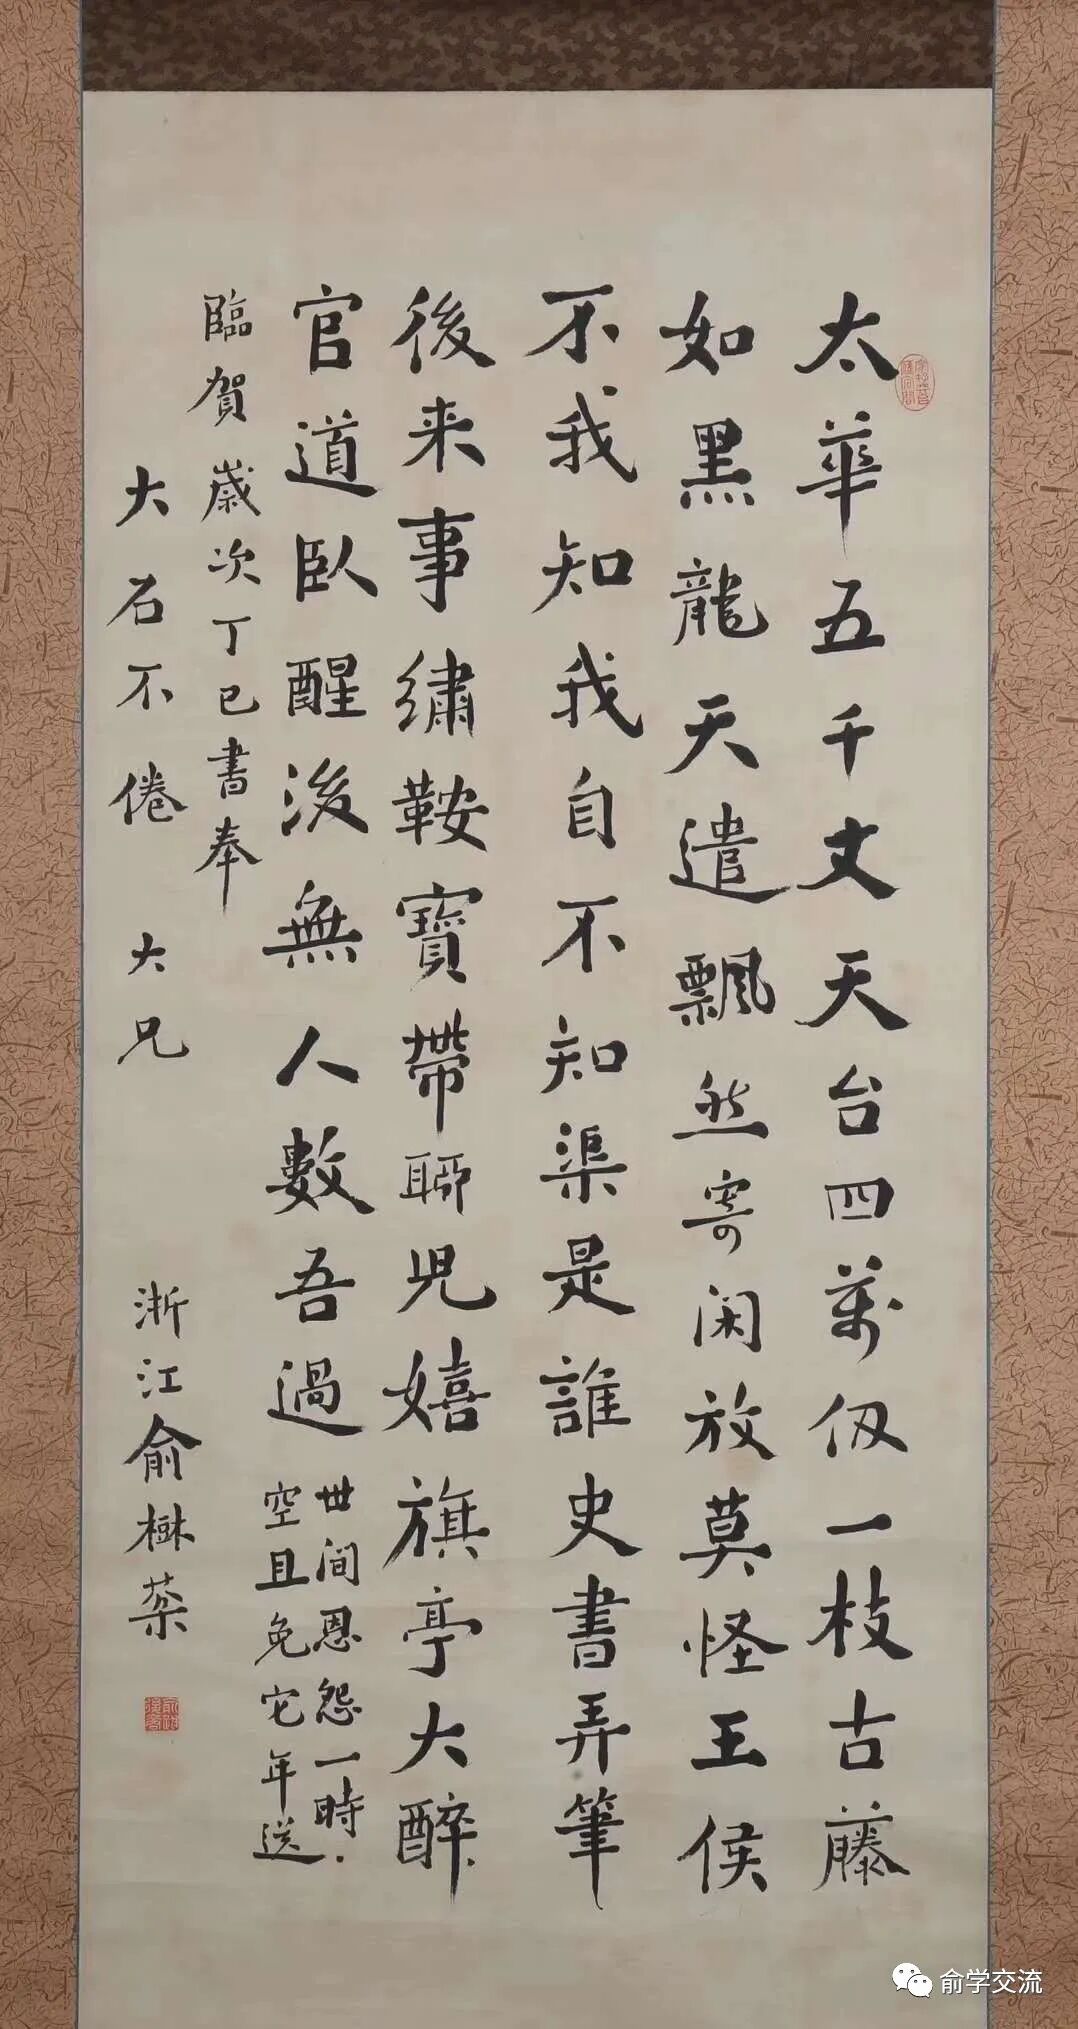 太華五千丈天台四萬仞一枝古藤
如黑龍天遣飄然寄闲放莫怪王侯
不我知我自不知渠是誰史書弄筆
後来事繡鞍寶帶聊児嬉旗亭大醉
官道臥醒後無人數吾過
世澗恩怨一時
空且免它年送
臨賀 歲次丁巳書奉
大石不倦 大兄
浙江俞樾
俞学交流